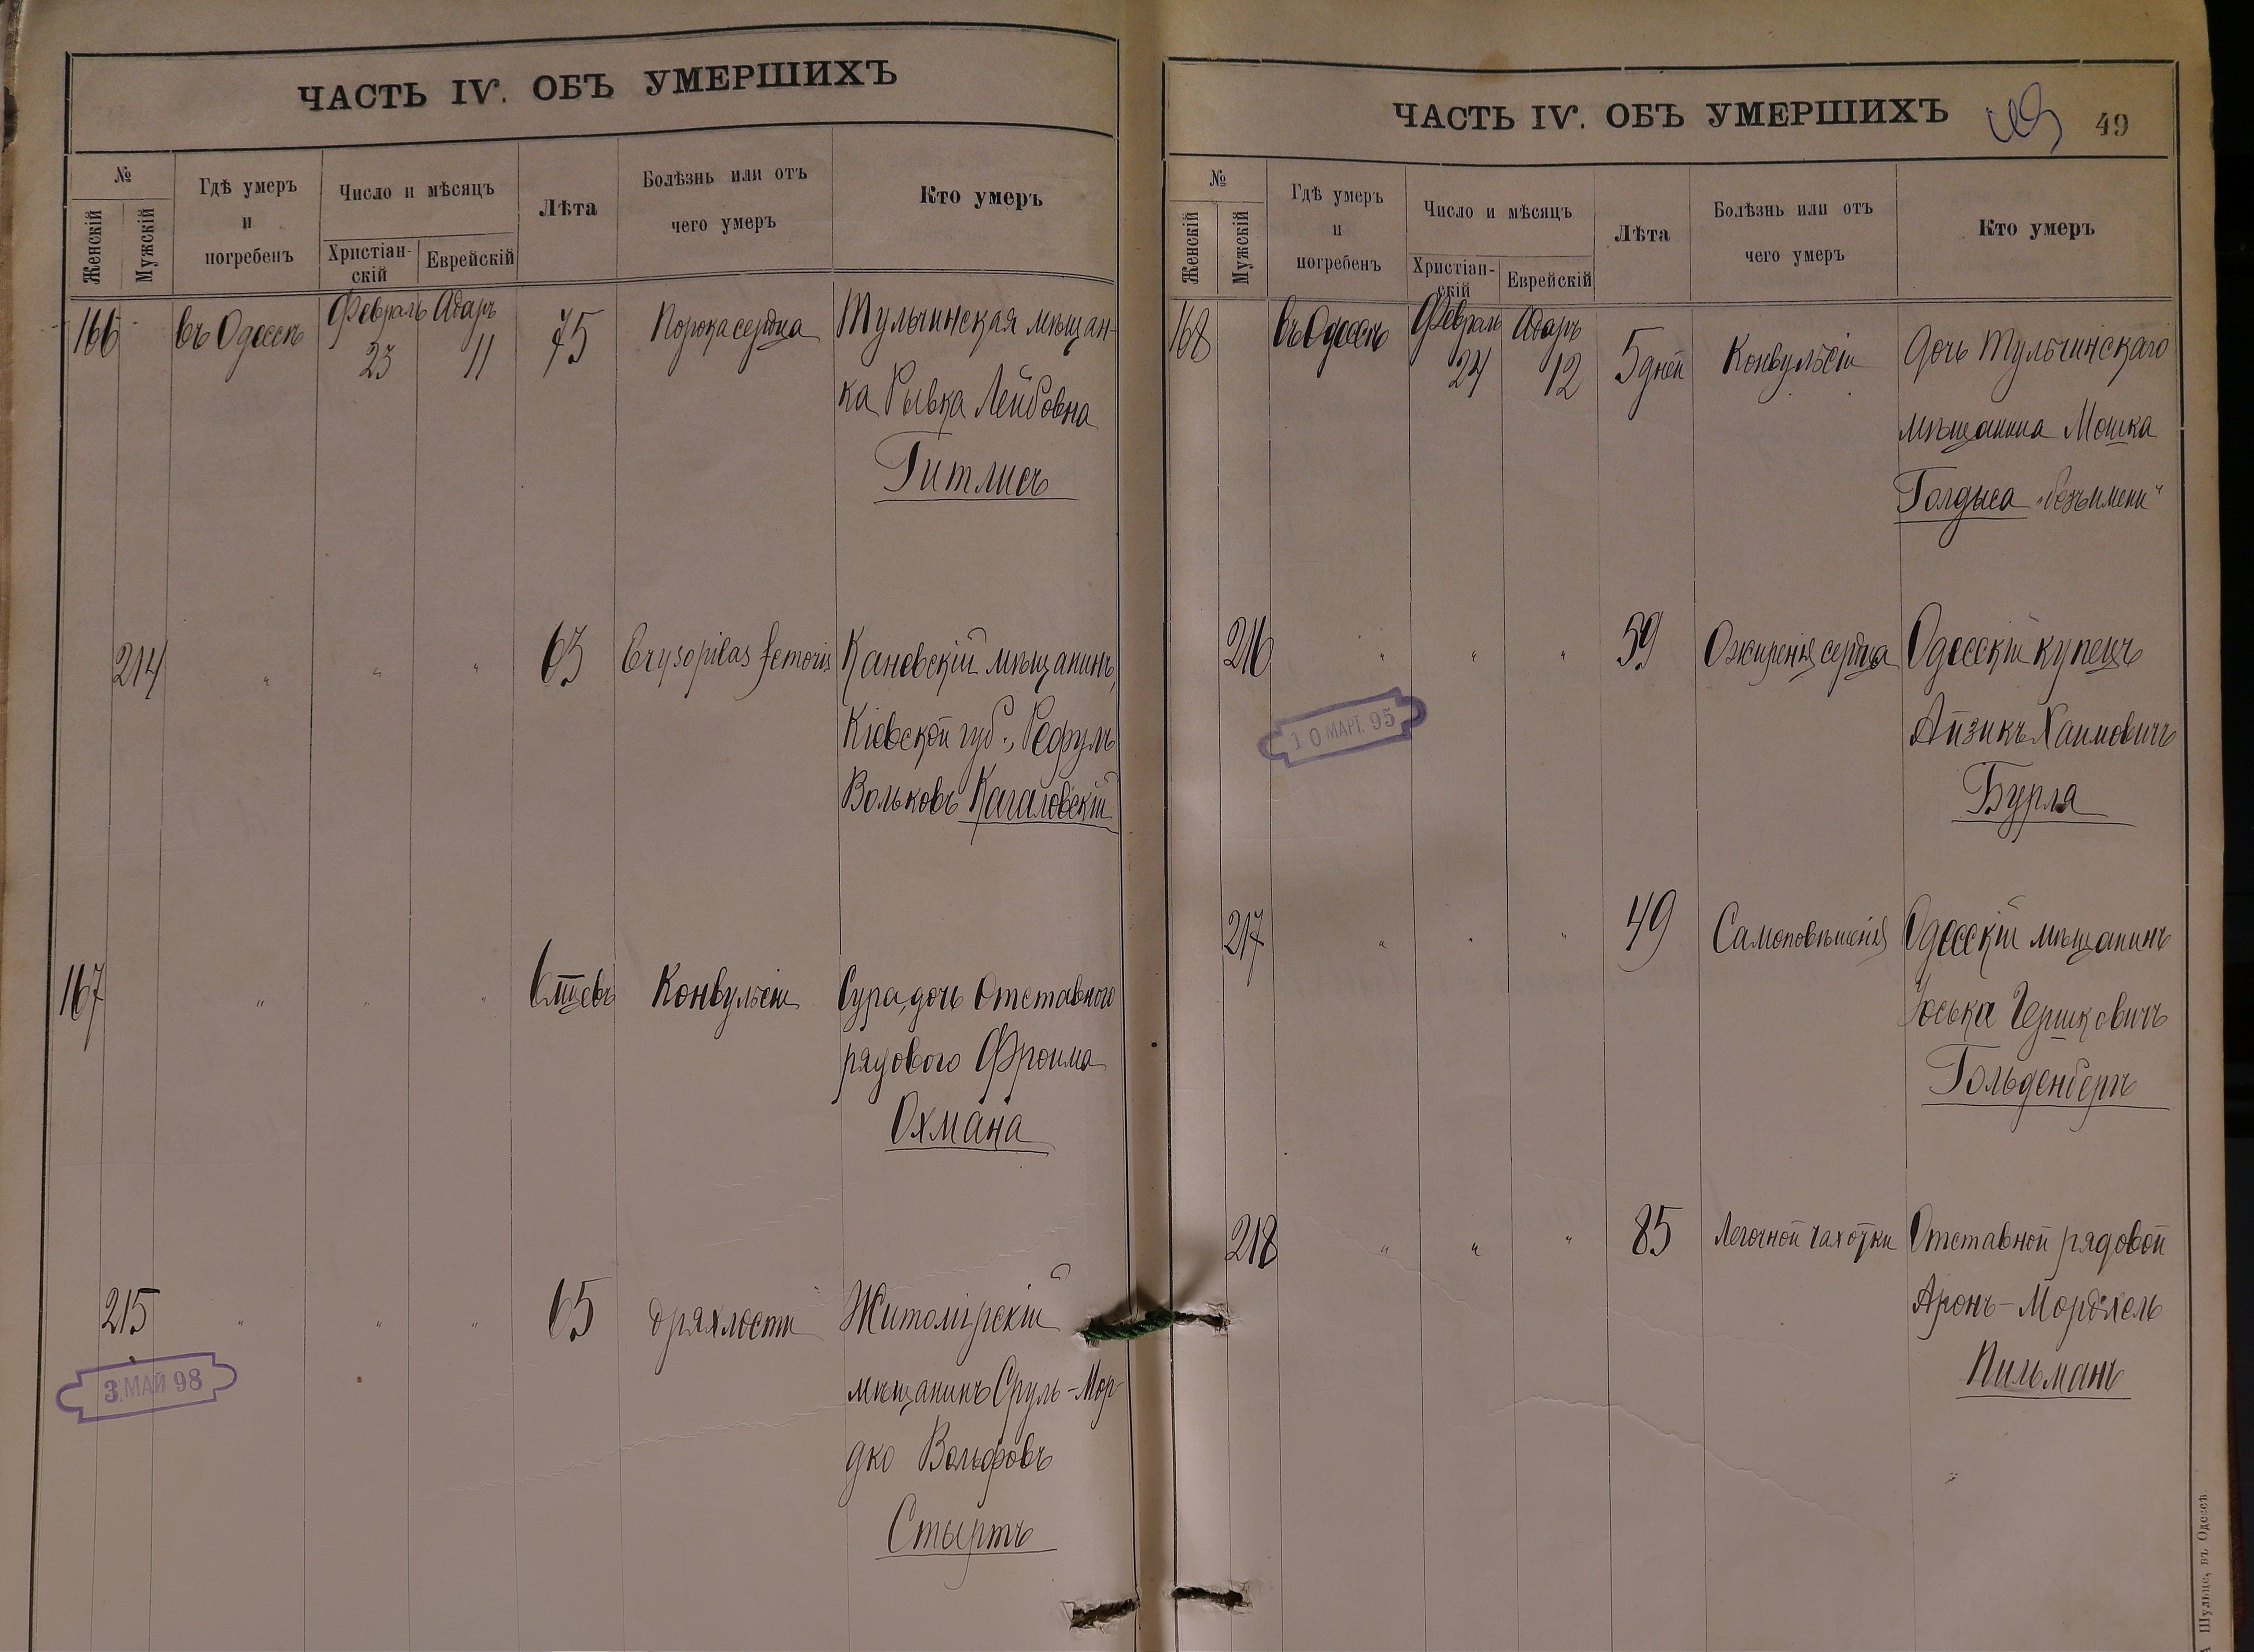 ЧАСТЬ IV. ОБЪ УМЕРШИХЪ
№
Женскій
Мужскій
Гдѣ умеръ
и
погребенъ
Число и мѣсяцъ
Христіан-
скій
Еврейскій
Лѣта
Болѣзнь или отъ
чего умеръ
Кто умеръ
166 въ Одессѣ Февраль 23 Адаръ 11 75 Порока сердца Тульчинская мѣщан-
ка Рывка Лейбовна
Гитлисъ
214 " " " 63 Erysopilas femoris Каневскій мѣщанинъ,
Кіевской губ., Рефулъ
Вольковъ Кагаловскій
167 " " " 6 мцевъ Конвульсіи Сура, дочь отставного
рядового Фроима
Охмана
215 " " " 65 дряхлости Житомірскій
мѣщанинъ Сруль-Мор-
дко Вольфовъ
Стыртъ
3. МАЙ 98
ЧАСТЬ IV. ОБЪ УМЕРШИХЪ
49
№
Женскій
Мужскій
Гдѣ умеръ
и
погребенъ
Число и мѣсяцъ
Христіан-
скій
Еврейскій
Лѣта
Болѣзнь или отъ
чего умеръ
Кто умеръ
168 въ Одессѣ Февраль 24 Адаръ 12 5 дней Конвульсіи дочь Тульчинскаго
мѣщанина Мошка
Голдыса "безъ имени"
216 " " " 59 Ожирѣнія сердца Одесскій купецъ
Айзикъ Хаимовичъ
Бурла
10 МАРТ. 95
217 " " " 49 Самоповѣшенія Одесскій мѣщанинъ
Іоська Гершковичъ
Гольденбергъ
218 " " " 85 Легочной чахотки Отставной рядовой
Аронъ-Мордхель
Пильманъ
Шульце, въ Одессѣ